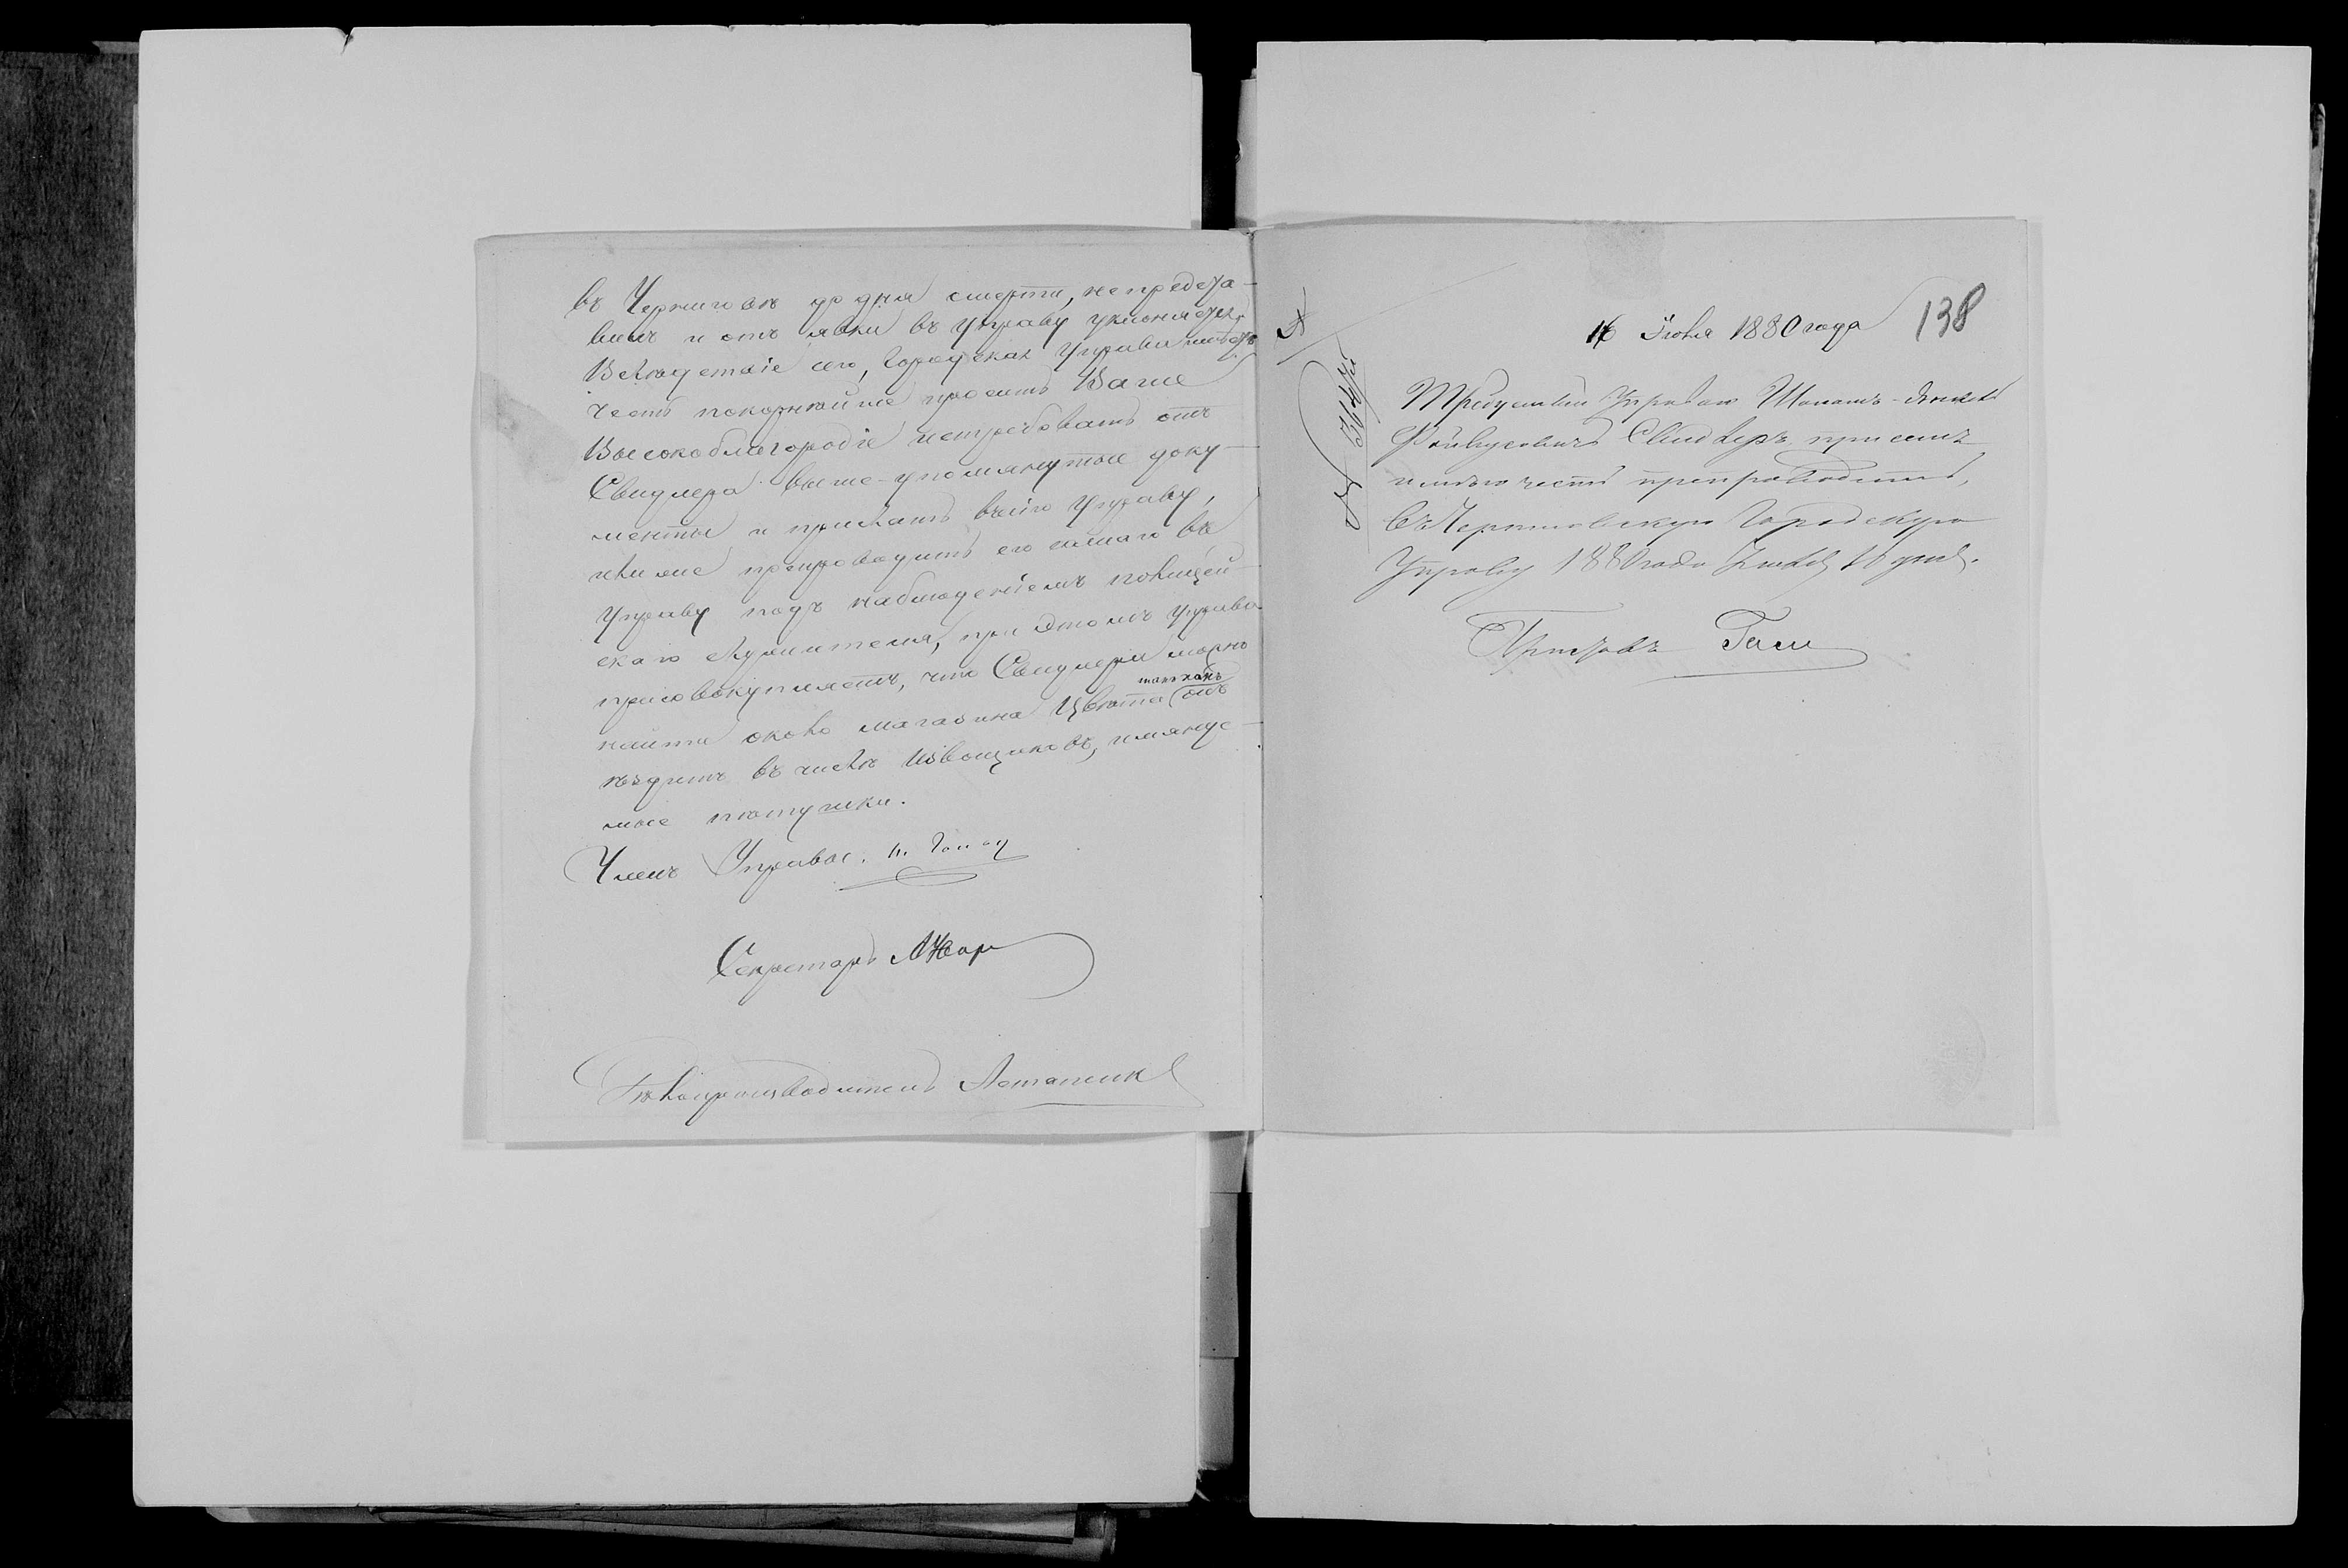 въ Черниговѣ до дня смерти, не предста-
вилъ и отъ явки въ Управу уклоняется.
Вслѣдствіе сего, Городская Управа имѣетъ
честь покорнѣйше просить Ваше
Высокоблагородіе истребовать отъ
Свидлера выше-упомянутые доку-
менты и прислать въ сію Управу,
или же препроводить его самаго въ
Управу подъ наблюденіемъ полицей-
скаго служителя, при этомъ Управа
присовокупляетъ, что Свидлера можно
найти около магазина Цвѣта (онъ такъ какъ
ѣздитъ въ числѣ извощиковъ, имянуе-
мые
Членъ Управы.
Секретарь
Дѣлопроизводитель
138
16 Іюня 1880 года
Требуемый Управою
Файвусовичъ Свидлеръ при семъ
имѣю честь препроводить,
въ Черниговскую Городскую
Управу 1880 года 16 дня.
Приставъ